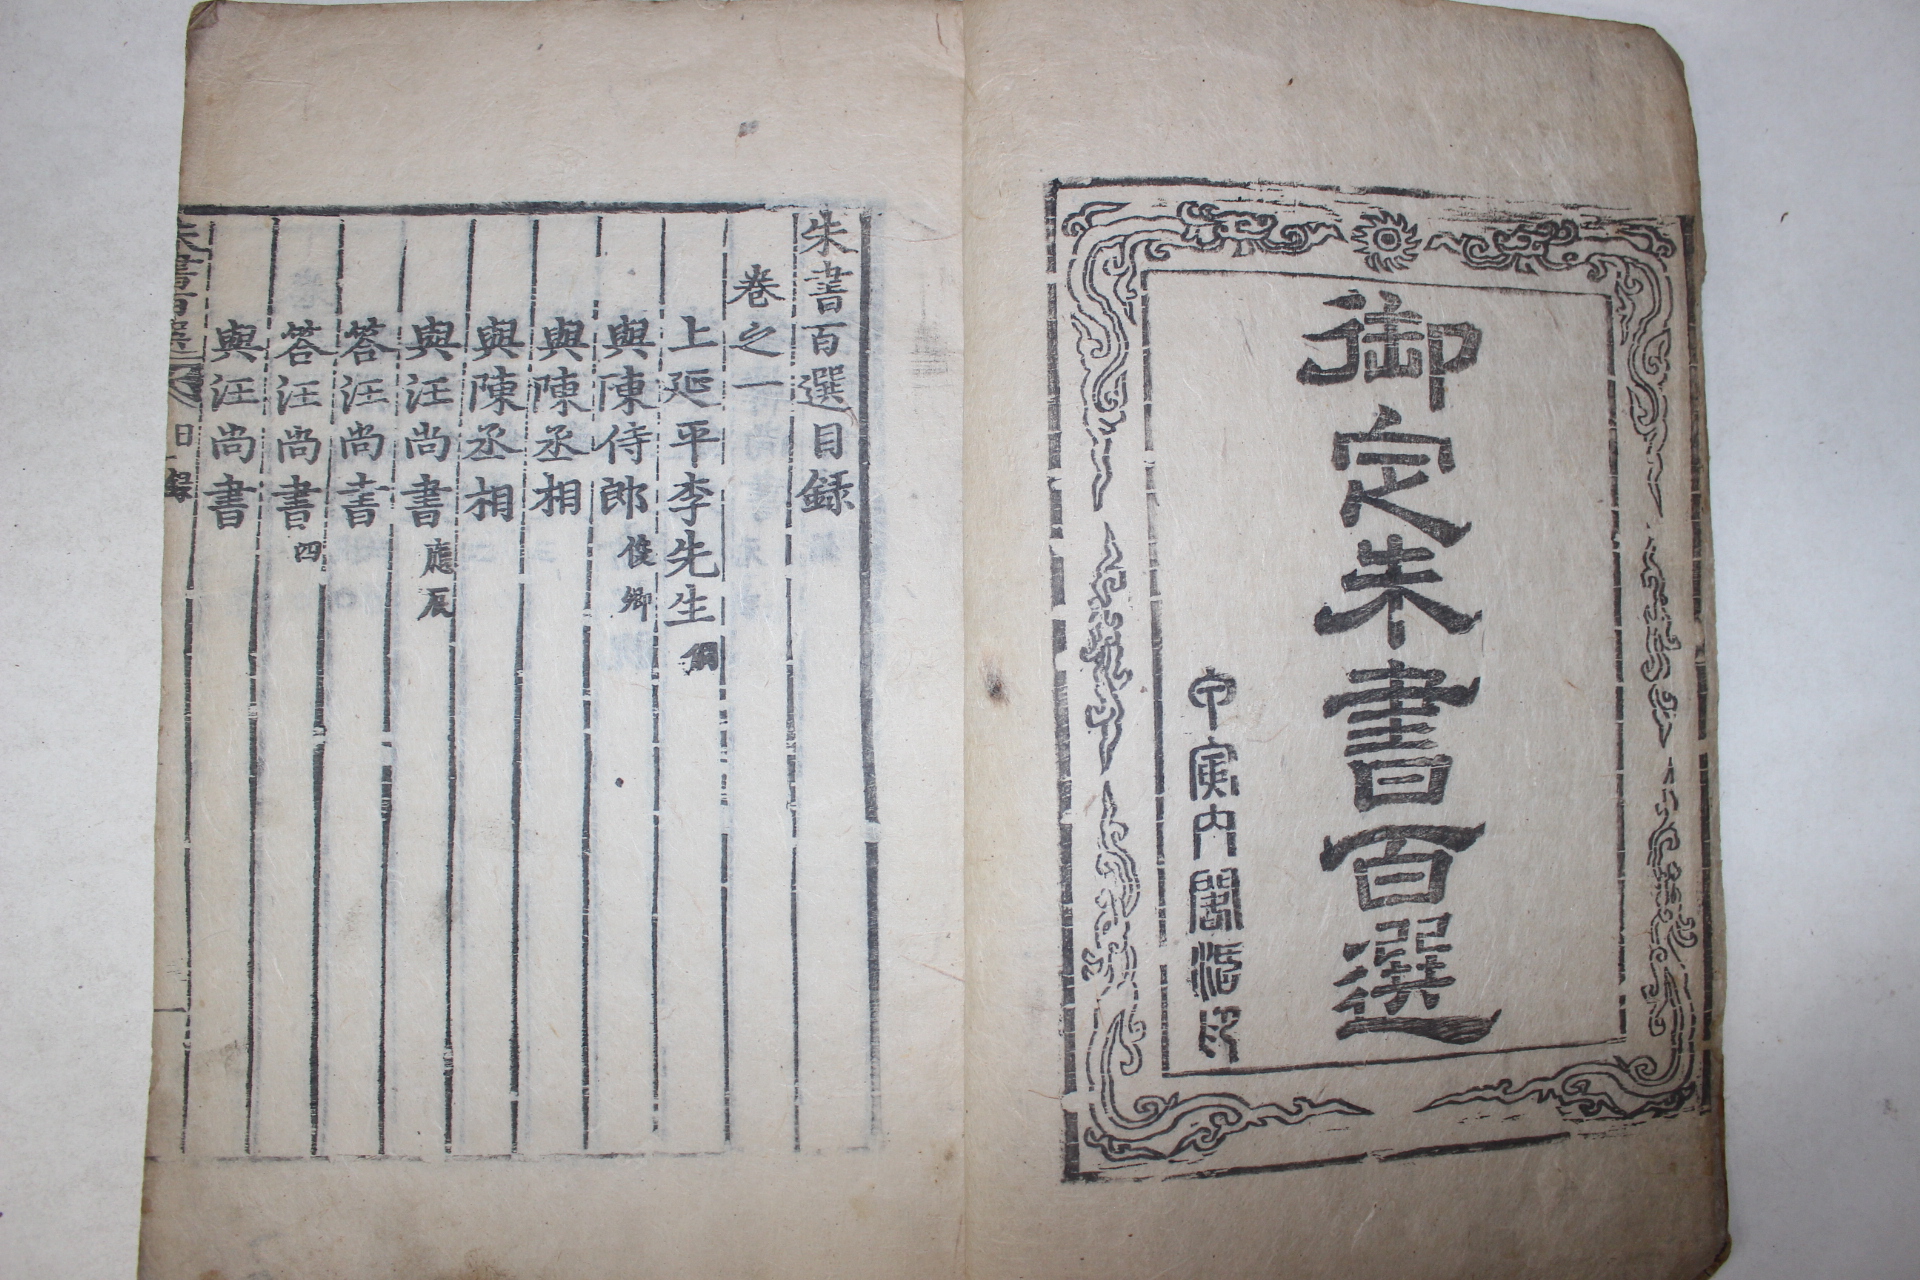 御定朱書百選
甲寅內閣活印
朱書百選目錄
卷之一
上延平李先生 侗
與陳侍郎 俊卿
與陳丞相
與陳丞相
與汪尚書 應辰
答汪尚書
答汪尚書 四
與汪尚書
朱書百選 目錄 一